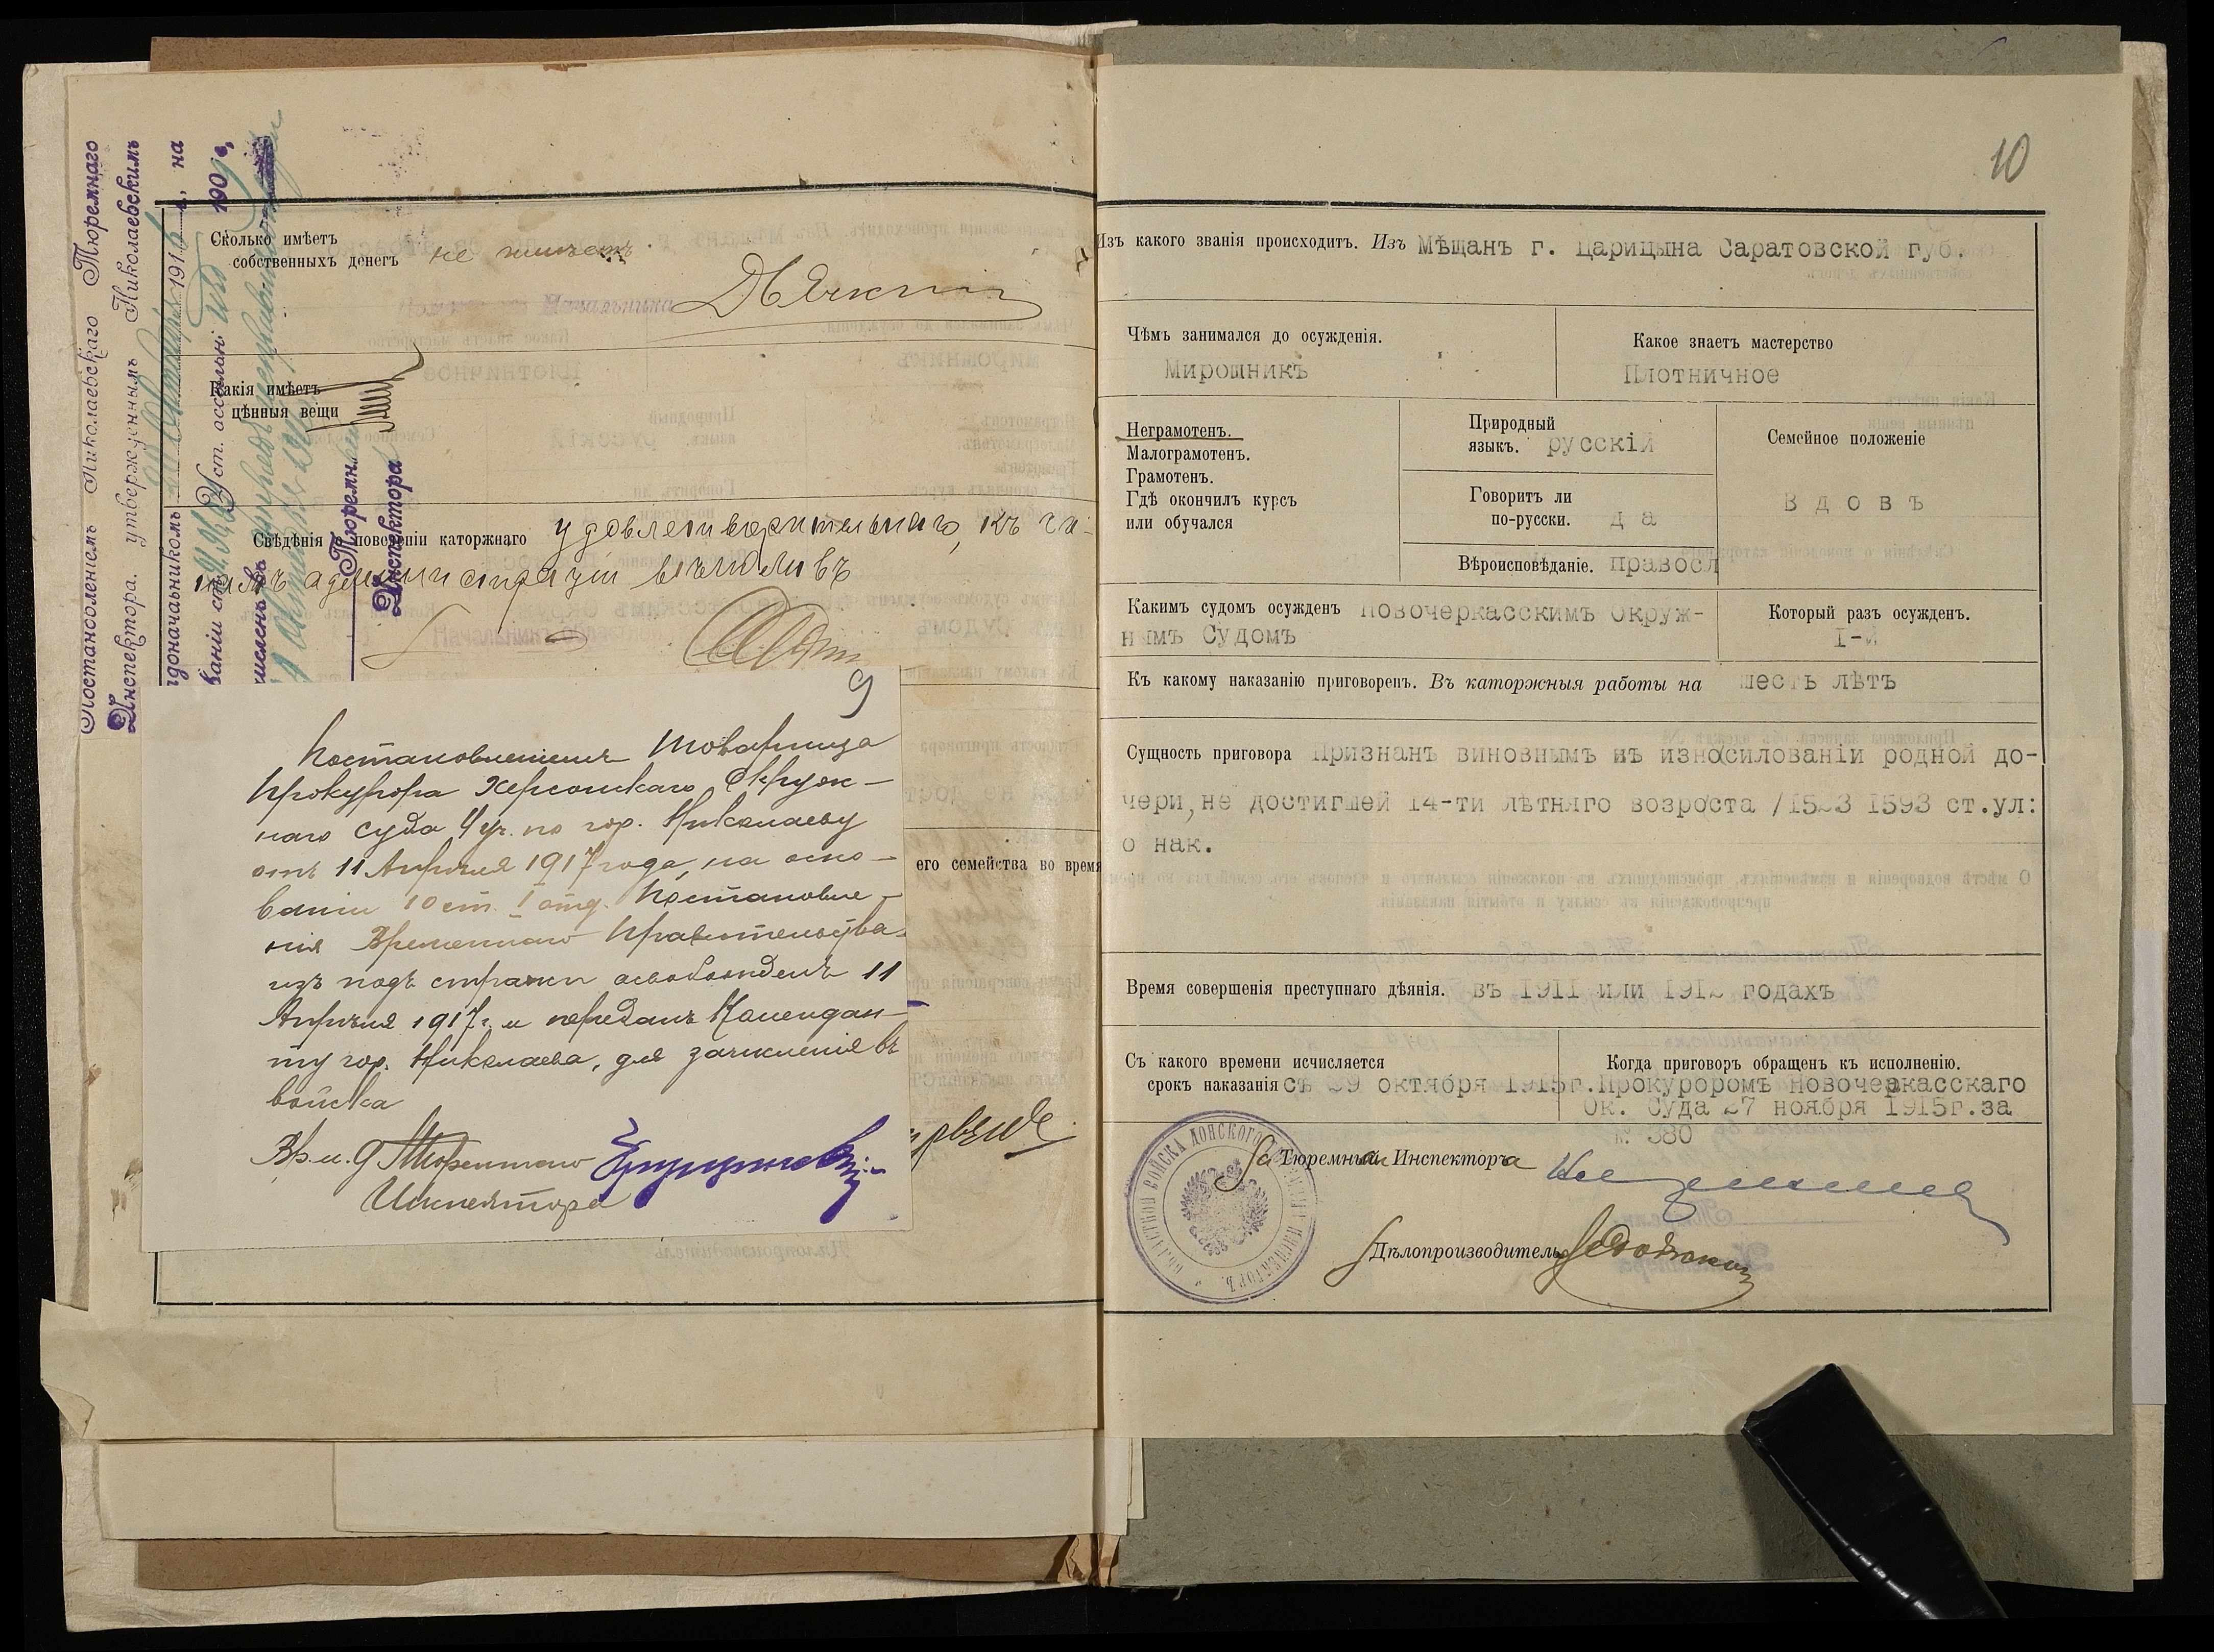 Постановленіемъ Николаевскаго Тюремнаго
Инспектора. утвержденнымъ Николаевскимъ
191.6 г., на
Уст. о ссыльн. изд. 1909 г.,
Тюремн.
Инспектора
Сколько имѣетъ
собственныхъ денегъ не имѣетъ.
Начальника
Какія имѣетъ
цѣнныя вещи
Свѣдѣнія о поведеніи каторжнаго удовлетворительнаго, къ чи-
намъ администраціи вѣжливъ
Начальникъ
9
Постановленіемъ Товарища
Прокурора Херсонскаго Окруж-
наго суда 4 уч. по гор. Николаеву
отъ 11 Апрѣля 1917 года, на осно-
ваніи 10 ст. I отд. Постановле-
нія Временнаго Правительства
изъ подъ стражи освобожденъ 11
Апрѣля 1917 г. и переданъ Комендан-
ту гор. Николаева, для зачисленія въ
войска
Вр. и. д. Тюремнаго
Инспектора
его семейства во время
10
Изъ какого званія происходитъ. Изъ Мѣщанъ г. Царицына Саратовской губ.
Чѣмъ занимался до осужденія.
Мирошникъ
Какое знаетъ мастерство
Плотничное
Неграмотенъ.
Малограмотенъ.
Грамотенъ.
Гдѣ окончилъ курсъ
или обучался
Природный
языкъ. русскій
Говоритъ ли
по-русски. да
Вѣроисповѣданіе. правосл
Семейное положеніе
Вдовъ
Какимъ судомъ осужденъ Новочеркасскимъ Окруж-
нымъ Судомъ
Который разъ осужденъ.
I-й
Къ какому наказанію приговоренъ. Въ каторжныя работы на шесть лѣтъ
Сущность приговора Признанъ виновнымъ въ изнасилованіи родной до-
чери, не достигшей 14-ти лѣтняго возроста /1523 1593 ст. ул:
о нак.
Время совершенія преступнаго дѣянія. въ 1911 или 1912 годахъ
Съ какого времени исчисляется
срокъ наказанія съ 29 октября 1915г.
Когда приговоръ обращенъ къ исполненію.
Прокуроромъ Новочеркасскаго
Ок. Суда 27 ноября 1915г. за
№ 380
За Тюремнаго Инспектора
Дѣлопроизводитель